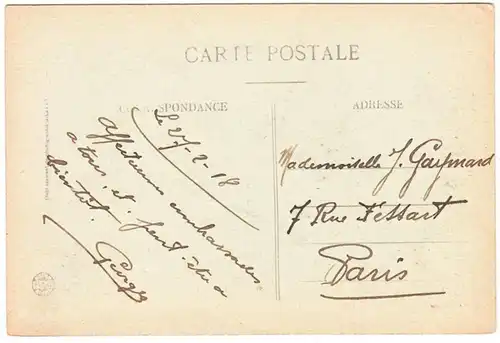 CARTE POSTALE
CORRESPONDANCE
ADRESSE
Le 27-2-18
Affectueuses embrassades
a tous, et peut-être a
bientôt.
Georges
Mademoiselle J. Gaymard
7 Rue Fessart
Paris